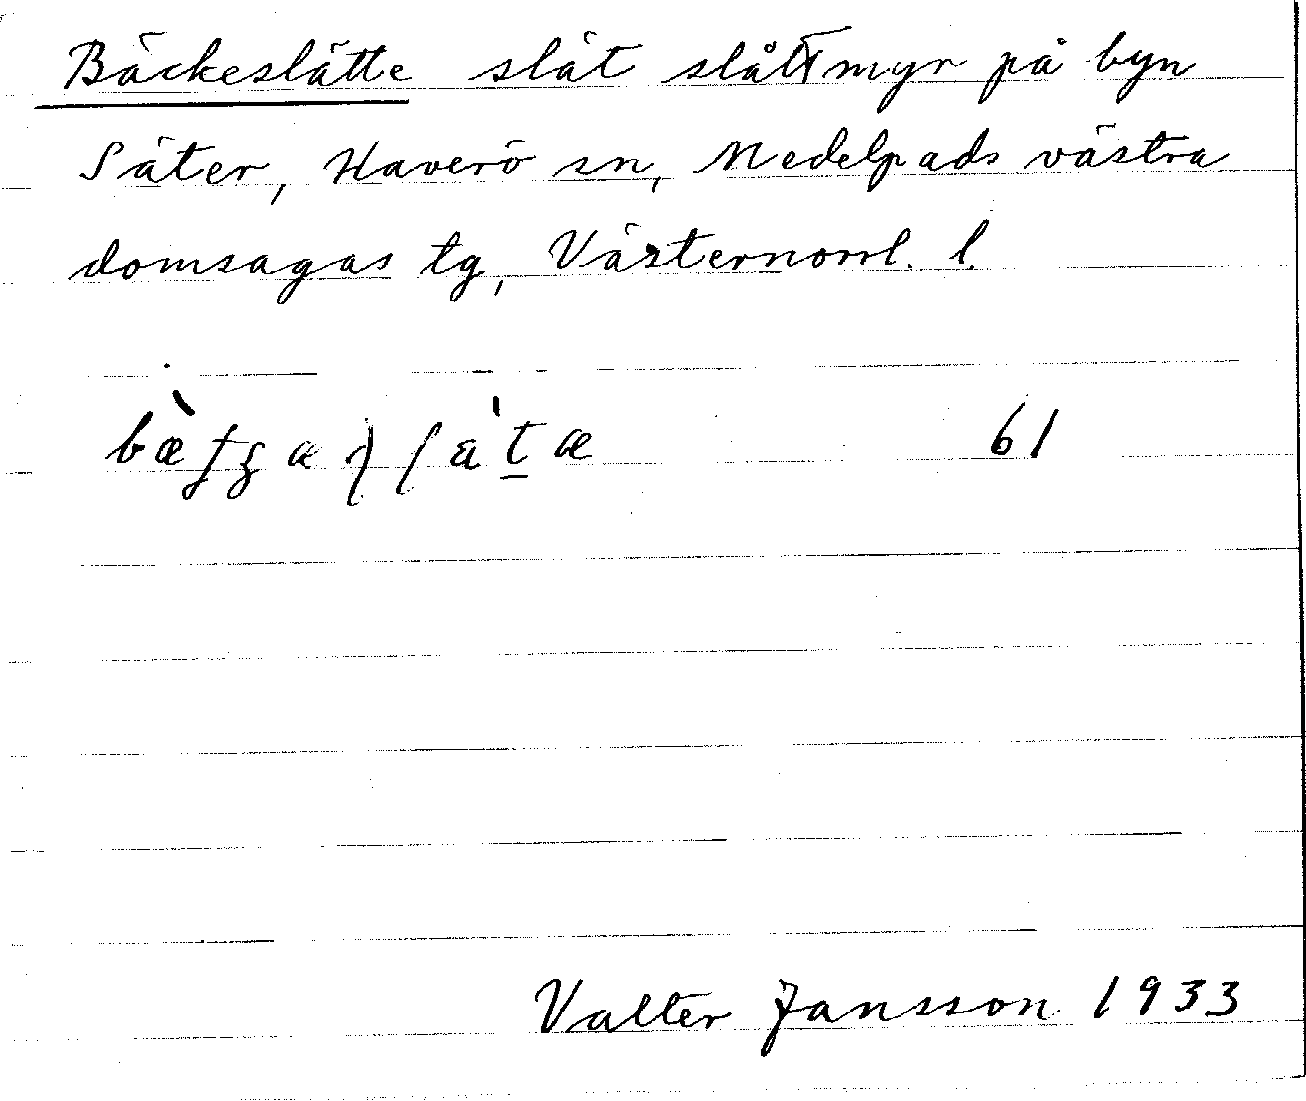 Bäckeslätte slåt slåttmyr på byn
Säter, Haverö sn, Medelpads västra
domsagas tg, Västernorrl. l.
61
Valter Jansson 1933